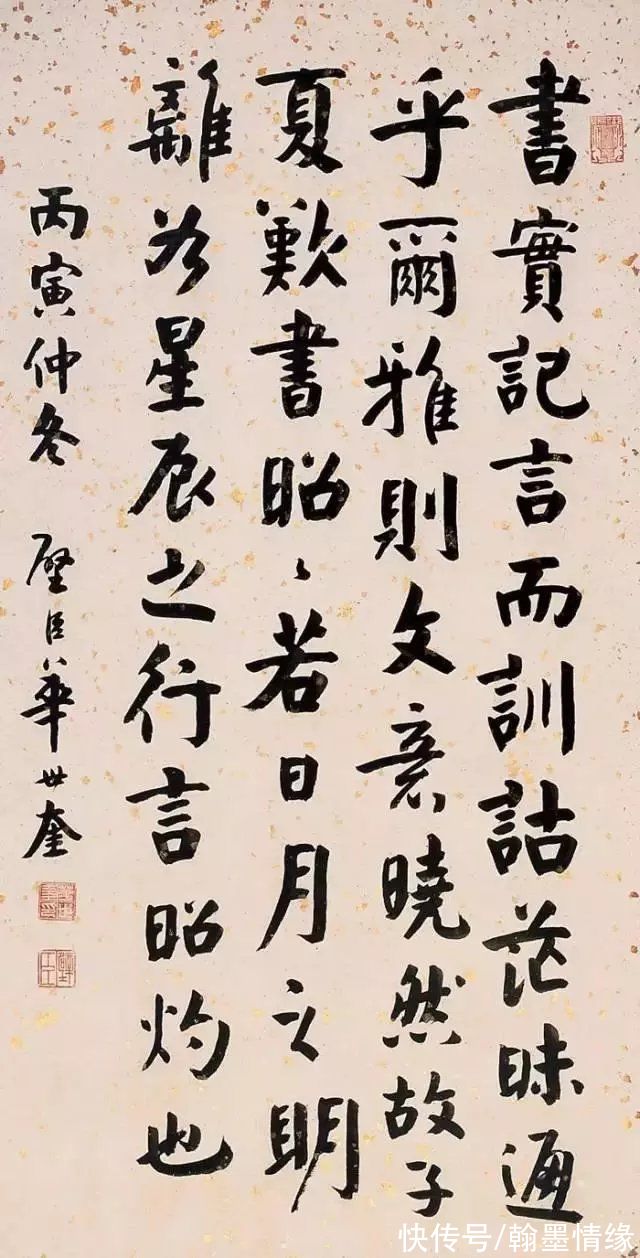 書實記言而訓詁茫昧通
乎爾雅則文意曉然故子
夏歎書昭〻若日月之明
離星辰之行言昭灼也
丙寅仲冬 璧臣華世奎
快传号/翰墨情缘